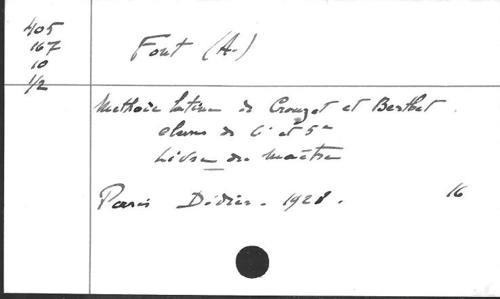 405
167
10
1/2
Font (A.)
Methode latine de Crouzet et Berthet.
classes de 6e et 5e
Livre du maître
Paris Didier. 1928.
16